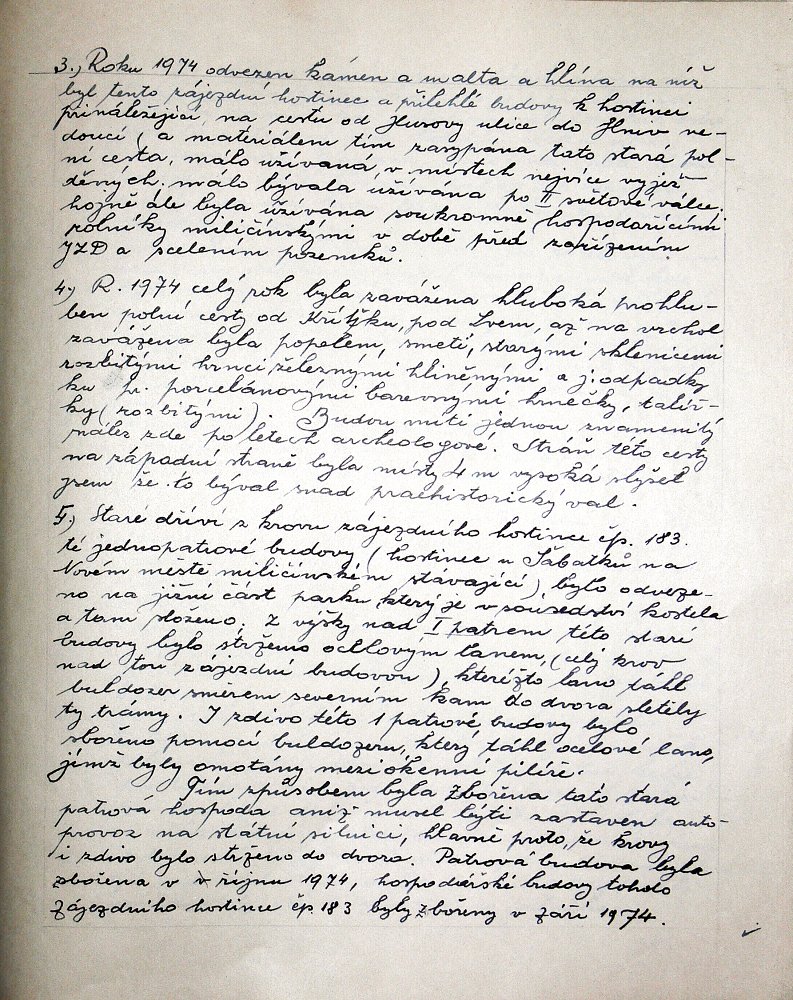 3., Roku 1974 odvezen kámen a malta a hlína na níž
byl tento zájezdní hostinec a přilehlé budovy k hostinci
přináležející, na cestu od Husovy ulice do Hniv ve-
doucí (a materiálem tím zasypána tato stará pol-
ní cesta, málo užívaná, v místech nejvíce vyjež-
děných. málo bývala užívána po II světové válce,
hojně ale byla užívána soukromně hospodařícími
rolníky miličínskými v době před zařízením
JZD a scelením pozemků.
4., R. 1974 celý rok byla zavážena hluboká prohlu-
beň polní cesty od Křížku, pod Lvem, až na vrchol
zavážena byla popelem, smetí, starými sklenicemi
rozbitými hrnci železnými hliněnými a j. odpadky
ku př. porcelánovými barevnými hrnéčky, talíř-
ky (rozbitými). Budou míti jednou znamenitý
nález zde po letech archeologové. Stráň této cesty
na západní straně byla místy 4 m vysoká slyšel
jsem že to býval snad praehistorický val.
5., Staré dříví z krovu zájezdního hostince čp. 183.
té jednopatrové budovy (hostinec u Šabatků na
Novém městě miličínském stávající), bylo odveze-
no na jižní část parku, který je v sousedství kostela
a tam složeno. Z výšky nad I patrem této staré
budovy bylo strženo ocelovým lanem, (celý krov
nad tou zájezdní budovou), kteréžto lano táhl
buldozer směrem severním kam do dvora sletěly
ty trámy. I zdivo této 1 patrové budovy bylo
sbořeno pomocí buldozeru, který táhl ocelové lano,
jímž byly omotány meziokenní pilíře.
Tím způsobem byla zbořena tato stará
patrová hospoda aniž musel býti zastaven auto-
provoz na státní silnici, hlavně proto, že krovy
i zdivo bylo strženo do dvora. Patrová budova byla
zbořena v říjnu 1974, hospodářské budovy tohoto
zájezdního hostince čp. 183 byly zbořeny v září 1974.